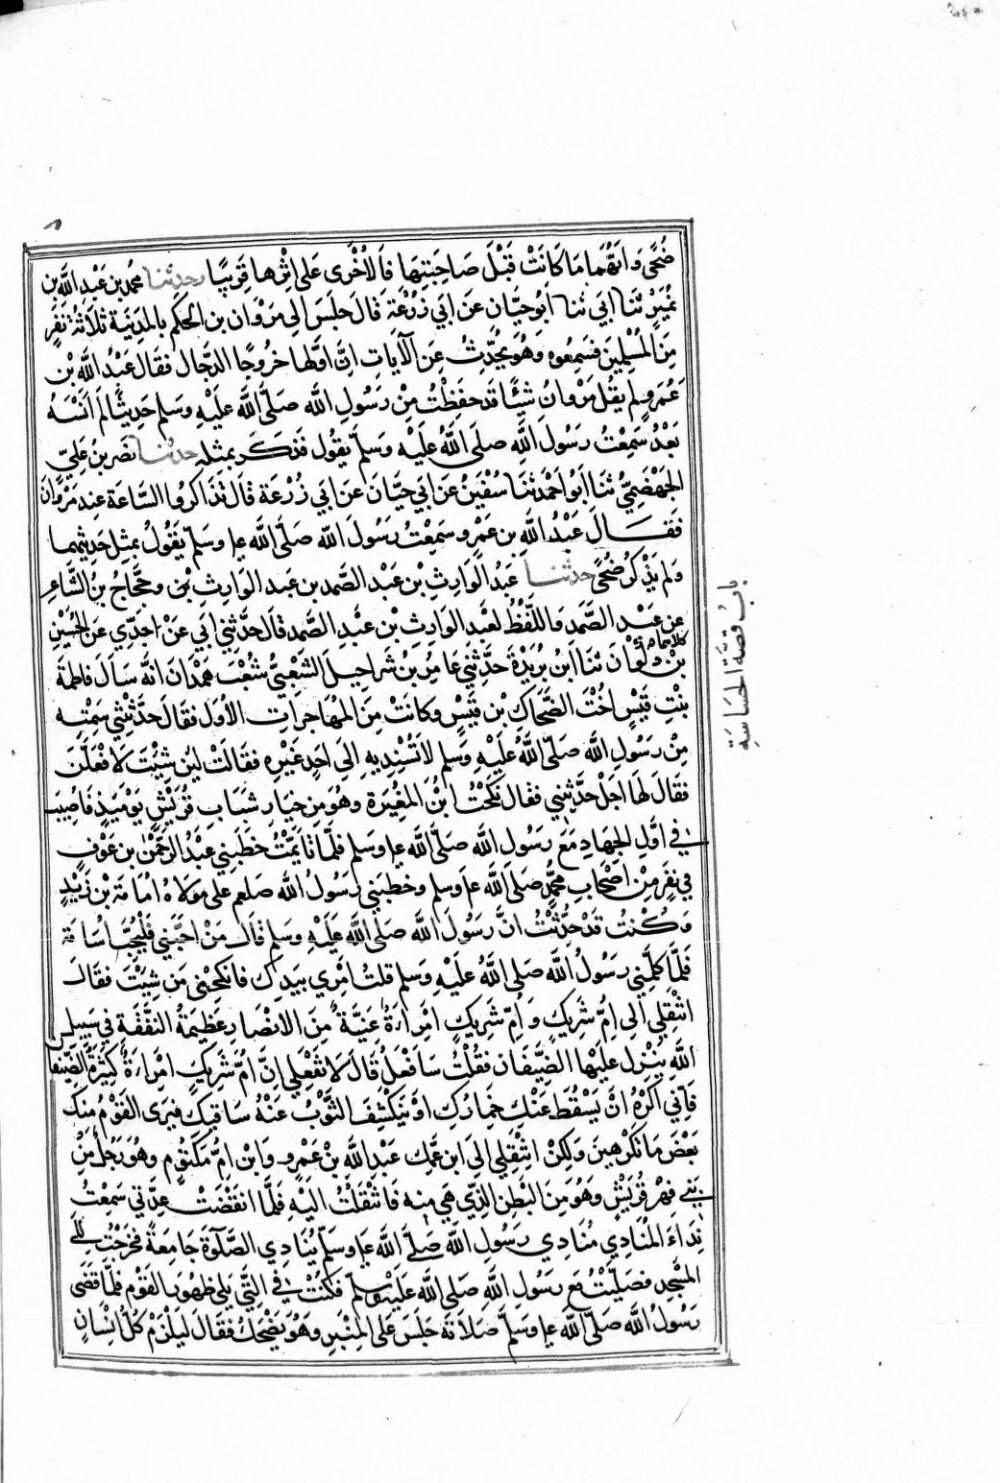 ضُحًى وَأَيُّهُما مَا كَانَتْ قَبْلَ صَاحِبَتِهَا فَالْأُخْرَى عَلَى إِثْرِها قَرِيبًا وحدثنا محمد بن عَبْدِ اللّٰه بن
نُمَيرٍ ثَنَا أَبِي ثنا أبُو حَيَّان عَن أبي زُرْعَة قَالَ جَلَسَ إِلى مَرْوَان بن الحَكَم بالمَدِينَة ثَلَاثَة نَفَرٍ
مِنَ المُسْلِمِينَ فَسَمِعُوه وَهُوَ يُحَدِّثُ عَنِ الْآيَات أنَّ أوَّلَها خرُوجًا الدَّجَّال فقَال عَبْدُ اللّٰه بْن
عَمْرٍو لم يقُل مَرْوانُ شَيْئًا قد حَفِظْتُ مِنْ رَسُولِ اللّٰه صَلّى اللّٰه عَلَيْهِ وَسَلم حَدِيثًا لم أَنْسَهُ
بَعْدُ سَمِعْتُ رسُولَ اللّٰهِ صَلَّى اللّٰهُ عَلَيْهِ وَسَلّم يَقُول فَذَكَرَ بمثلِه حدثنا نَصْر بن عَلِيٍّ
الجَهْضَمِيُّ ثنا أبُو أحْمَد ثنَا سُفْيَنُ عَن أبي حَيَّان عَن أبي زُرْعَة قَالَ تَذَاكَرُوا السَّاعَة عِند مَرْوانَ
فَقَــالَ عَبْدُ اللّٰهِ بن عَمْرٍو سَمِعْتُ رَسُولَ اللّٰه صَلّى اللّٰه ع وسَلّم يَقُولُ بمِثْلِ حَدِيثِهِما
وَلم يَذْكُرْ ضُحًى حدثنا عَبدُ الوَارِثِ بْن عَبْد الصَّمد بن عَبد الوَارِثِ وَحَجَّاجُ بنُ الشَّاعِر
عن عَبْدِ الصَّمَد وَاللَّفْظُ لعَبْد الوَارثِ بْن عَبْدِ الصَّمد قَالَ حَدَّثَنِي أبي عَنْ جَدِّي عَنِ الحُسَيْنِ
بْن ذَكْوَان ثنَا ابنُ بُرَيْدَةَ حَدَّثَنِي عَامِرُ بْن شَرَاحِيل الشَّعْبِيُّ شَعْبُ هَمْدَانَ أنَّهُ سَأَلَ فَاطِمَةَ
بنْتِ قَيْسٍ أُخْتَ الضَّحَّاكِ بن قَيْسٍ وكَانَتْ مِنَ المُهَاجِرَاتِ الأُوَلِ فقَالَ حَدِّثِيْنِي سَمِعْتِهِ
مِنْ رَسُولِ اللّٰه صَلّى اللّٰهُ عَلَيْهِ وسَلم لا تُسْنِدِيهِ إِلَى أحَدٍ غَيْرِهِ فقَالَتْ لَئِن شِئْتَ لَأَفْعَلَنَّ
فقَالَ لَهَا أجَلْ حَدِّثِيْنِي فقَال نَكَحْتُ ابْنَ المُغِيرَةِ وهُوَ مِن خِيَارِ شَبَابِ قُرَيْشٍ يَوْمَئِذٍ فَأُصِيبَ
في أوَّلِ الجِهَادِ مَعَ رسُولِ اللّٰه صَلّى اللّٰه ع وسَلم فَلَمَّا تَأَيَّمْتُ خَطَبَنِي عَبْدُ الرَّحْمٰن بن عَوْف
في نَفَرٍ مِنْ أصْحَابِ محمَّدٍ صَلى اللّٰه ع وسلم وخَطبَنِي رسُولُ اللّٰه صَلعم عَلى مَوْلَاهُ أُسَامَة بْن زَيْدٍ
وَكُنْتُ قَدْ حُدِّثْتُ أنَّ رسُولَ اللّٰه صَلّى اللّٰهُ عَلَيْهِ وسَلم قَالَ مَنْ أحَبَّنِي فَلْيُحِبَّ أُسَامَة
فَلَمَّا كَلَّمَنِي رسُولُ اللّٰه صَلى اللّٰهُ عَلَيْهِ وَسَلم قلتُ أمْرِي بِيَدِكَ فَانْكِحْنِي مَن شِئْتَ فقَالَ
انْتَقِلِي إلى أمِّ شَرِيكٍ وَأمُّ شَرِيكٍ امْرَأَةٌ غَنِيَّةٌ مِنَ الأنصَارِ عَظِيمَةُ النَّفَقَةِ في سَبِيلِ
اللّٰهِ يَنْزِل عَلَيْها الضِّيفَان فقُلْتُ سَأَفْعَلُ قَالَ لَا تَفْعَلِي إِنَّ أُمَّ شَرِيكٍ امْرَأَةٌ كَثِيرَةُ الضِّيفَان
فَإِنّي أَكْرَهُ أنْ يَسْقُطَ عَنْكِ خِمَارُكِ أوْ يَنْكَشِفَ الثَّوْبُ عَنْهُ سَاقَيْكِ فيَرَى القَوْمُ مِنْكِ
بَعْضَ مَا تَكْرَهِينَ وَلكِنْ انْتَقِلِي إلَى ابن عَمِّكِ عَبْدِ اللّٰه بْن عَمْرٍو وَابْنِ أُمِّ مَكْتُوم وهُوَ رَجُلٌ مِنْ
بَنِي فِهْرِ قُرَيْشٍ وهُوَ مِنَ البَطْنِ الَّذِي هِيَ مِنْه فَانْتَقَلْتُ إلَيْهِ فَلَمَّا انْقَضَتْ عِدَّتي سَمِعْتُ
نِدَاءَ المُنَادِي مُنَادِي رسُولِ اللّٰه صَلَّى اللّٰه ع وسَلّم يُنَادِي الصَّلٰوةَ جَامِعَةً فخَرَجْتُ إِلَى
المَسْجِد فصَلَّيْتُ مَع رَسُول اللّٰهِ صَلى اللّٰهُ عَلَيْهِ وسلّم فَكُنْتُ في الَّتِي يَلِي ظهُورَ القَوْم فلَمَّا قَضَى
رَسُولُ اللّٰه صَلَّى اللّٰه ع وسَلّمَ صَلَاتَه جَلَسَ عَلى المِنْبَرِ وهُوَ يَضْحَكُ فقَالَ لِيَلْزَمْ كُلُّ إِنْسَانٍ
باب قصَّة الجسَّاسَةِ